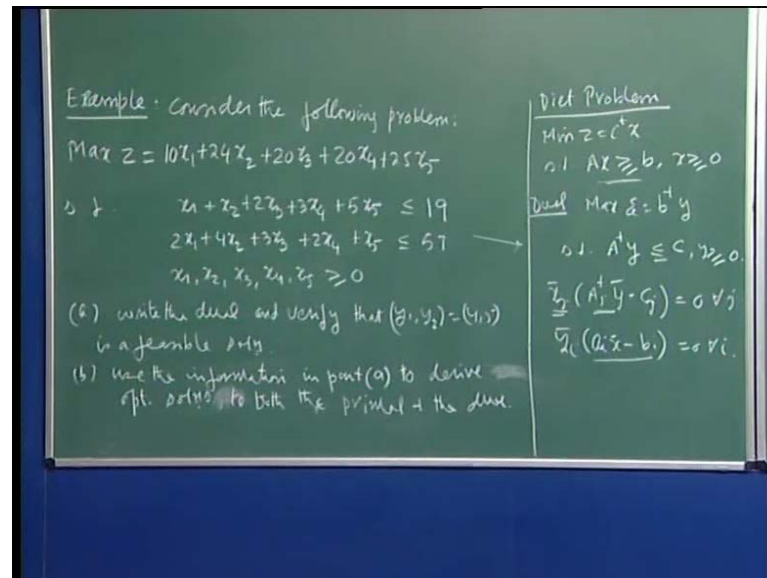 Example. Consider the following problem.
Max Z = 10x₁+24x₂+20x₃+20x₄+25x₅
s.t. x₁+x₂+2x₃+3x₄+5x₅ ≤ 19
2x₁+4x₂+3x₃+2x₄+x₅ ≤ 57
x₁, x₂, x₃, x₄, x₅ ≥ 0
(a) write the dual and verify that (y₁,y₂)=(4,5)
is a feasible soln.
(b) use the information in part (a) to derive
opt. solns to both the primal + the dual.
Diet Problem
Min z=cᵗx
s.t Ax ≥ b, x≥0
Dual Max = bᵗy
s.t. Aᵗy ≤ c, y≥0.
(Aⱼᵗ ȳ - cⱼ) = 0 ∀ j
(aᵢx̄ - bᵢ) = 0 ∀ i.